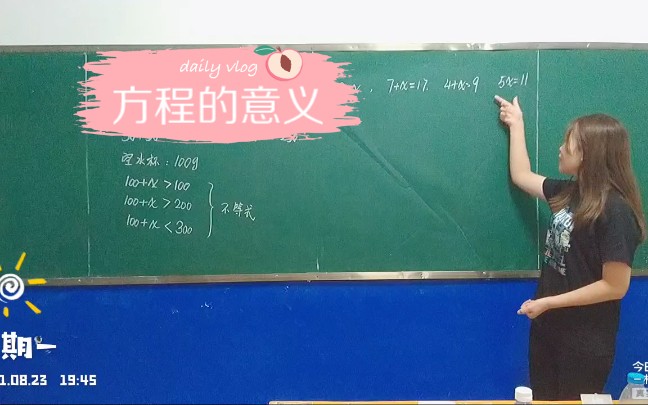 daily vlog
方程的意义
7+x=17. 4+x>9 5x=11
空水杯：100g
100+x>100
100+x>200
100+x<300
不等式
期一
1.08.23 19:45